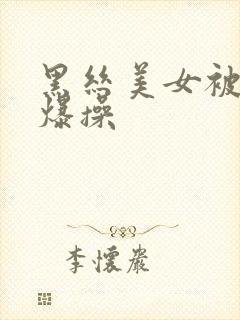 黑丝美女被
爆操
李怀岩